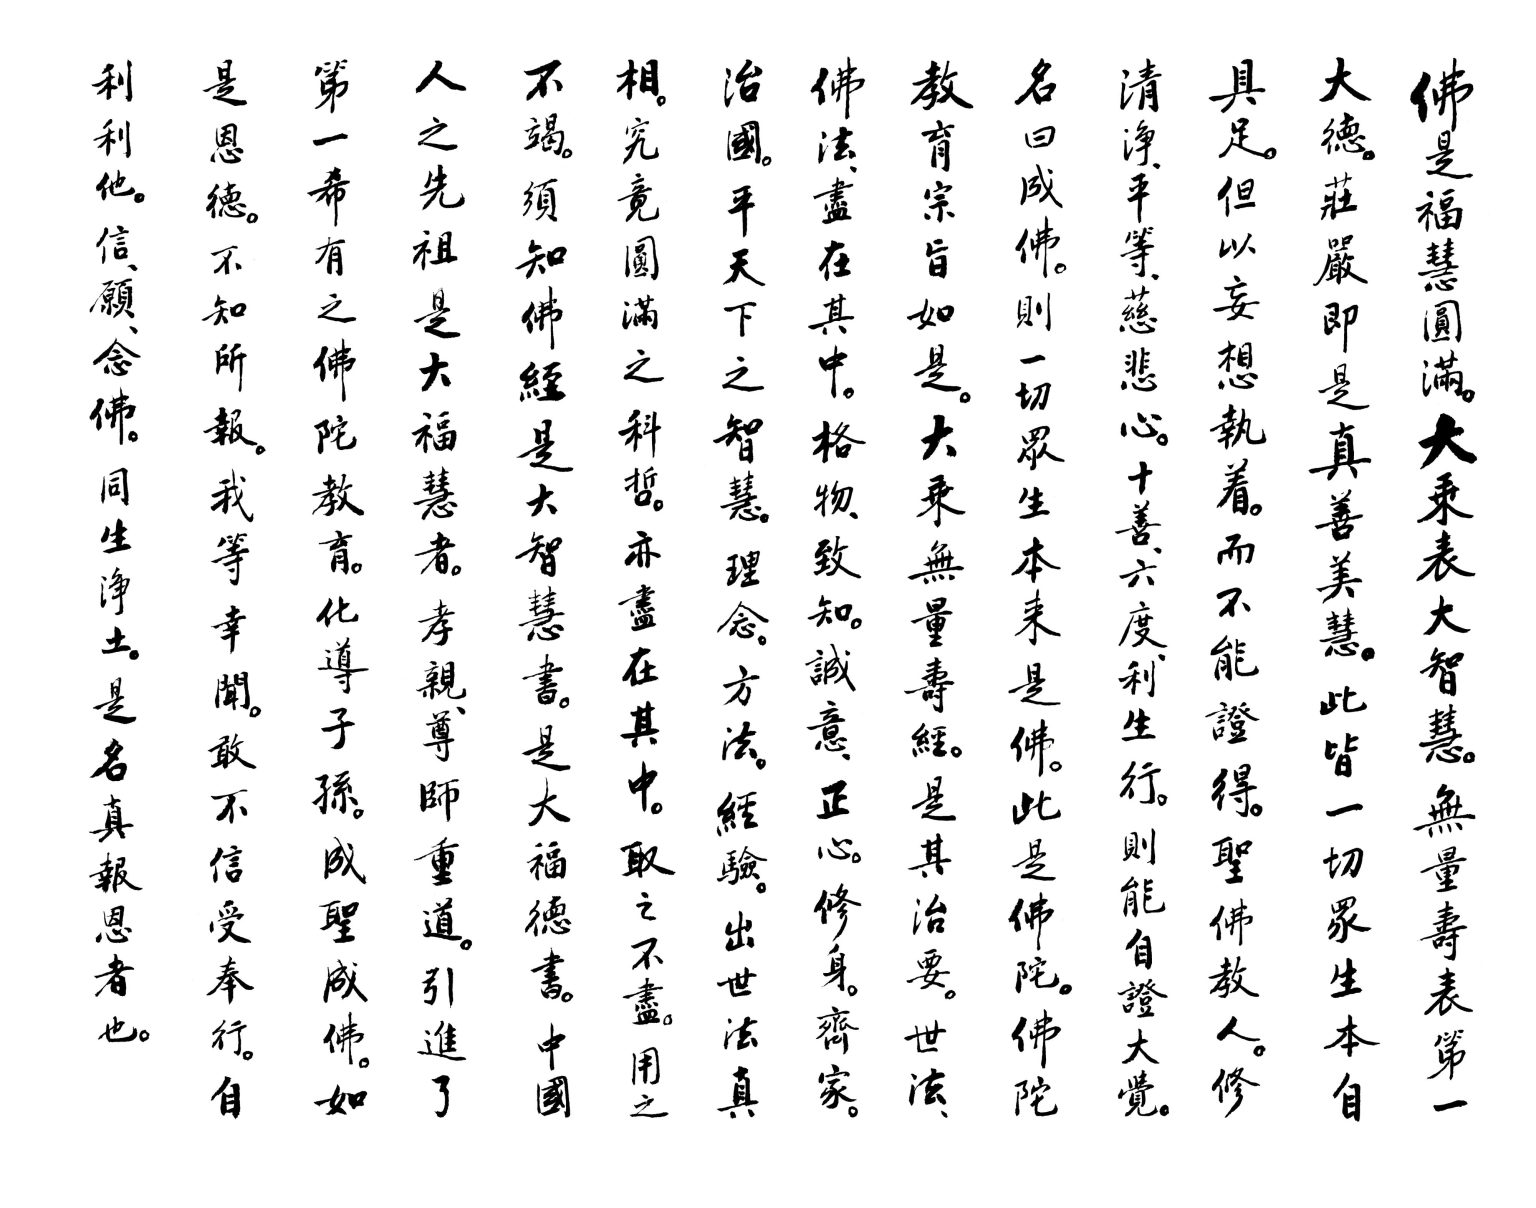 佛是福慧圓滿。大乘表大智慧。無量壽表第一
大德。莊嚴即是真善美慧。此皆一切眾生本自
具足。但以妄想執着。而不能證得。聖佛教人。修
清淨、平等、慈悲心。十善、六度、利生行。則能自證大覺。
名曰成佛。則一切眾生本来是佛。此是佛陀。佛陀
教育宗旨如是。大乘無量壽經。是其治要。世法、
佛法、盡在其中。格物、致知。誠意、正心。修身。齊家。
治國。平天下之智慧。理念。方法。經驗。出世法真
相。究竟圓滿之科哲。亦盡在其中。取之不盡。用之
不竭。須知佛經是大智慧書。是大福德書。中國
人之先祖是大福慧者。孝親、尊師重道。引進了
第一希有之佛陀教育。化導子孫。成聖成佛。如
是恩德。不知所報。我等幸聞。敢不信受奉行。自
利利他。信、願、念佛。同生淨土。是名真報恩者也。